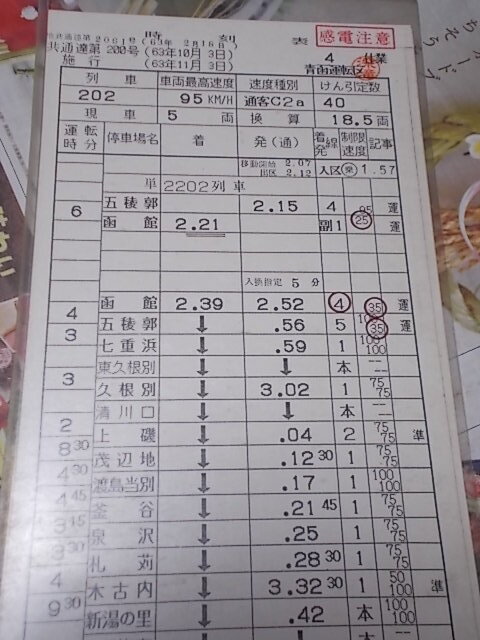 時刻表 感電注意
共通達第2061号(63年2月16日)
共通達第200号(63年10月3日) 4 仕業
施行(63年11月3日) 青函運転区
列車 車両最高速度 速度種別 けん引定数
202 95KM/H 通客C2a 40
現車 5両 換算 18.5両
運転時分 停車場名 着 発(通) 着発線 制限速度 記事
移動開始 2.07
出区 2.12 入区 1.57
単2202列車
五稜郭 2.15 4 95 運
6 函館 2.21 副1 25 運
入換指定 5分
函館 2.39 2.52 4 35 運
4 五稜郭 ↓ .56 5 100 35 運
3 七重浜 ↓ .59 1 100 100
東久根別 ↓ ↓ 本 -- --
3 久根別 ↓ 3.02 1 75 75
清川口 ↓ ↓ 本 -- --
2 上磯 ↓ .04 2 75 75 準
8 30 茂辺地 ↓ .12 30 1 75 75
4 30 渡島当別 ↓ .17 1 100 100
4 45 釜谷 ↓ .21 45 1 75 75
3 15 泉沢 ↓ .25 1 75 75
3 30 札苅 ↓ .28 30 1 75 75
4 木古内 ↓ 3.32 30 1 50 100 準
9 30 新湯の里 ↓ .42 本 100 100